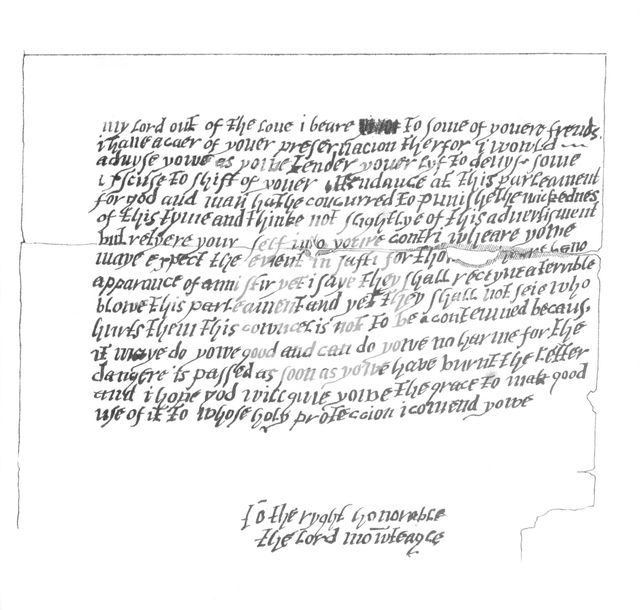 my lord out of the loue i beare to some of youere frends
i haue a caer of youer preseruacion therfor i would
aduyse yowe as yowe tender youer lyf to deuys some
excuse to shift of youer attendance at this parleament
for god and man hathe concurred to punishe the wickednes
of this tyme and thinke not slightlye of this aduertisment
but retyere youre self into youre contri wheare yowe
maye expect the euent in safti for thowghe theare be no
apparance of anni stir yet i saye they shall receyue a terrible
blowe this parleament and yet they shall not seie who
hurts them this cowncel is not to be acontemned because
it maye do yowe good and can do yowe no harme for the
dangere is passed as soon as yowe haue burnt the letter
and i hope god will giue yowe the grace to mak good
use of it to whose holy proteccion i comend yowe
To the ryght honorable
the lord mowteagle